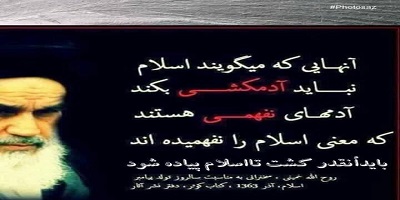 #Photosaz
آنهایی که میگویند اسلام
نباید آدمکشی بکند
آدمهای نفهمی هستند
که معنی اسلام را نفهمیده اند
بایدآنقدر کشت تااسلام پیاده شود
روح الله خمینی ، سخنرانی به مناسبت سالروز تولد پیامبر
اسلام، آذر 1363 ، کتاب کوثر ، دفتر نشر آثار